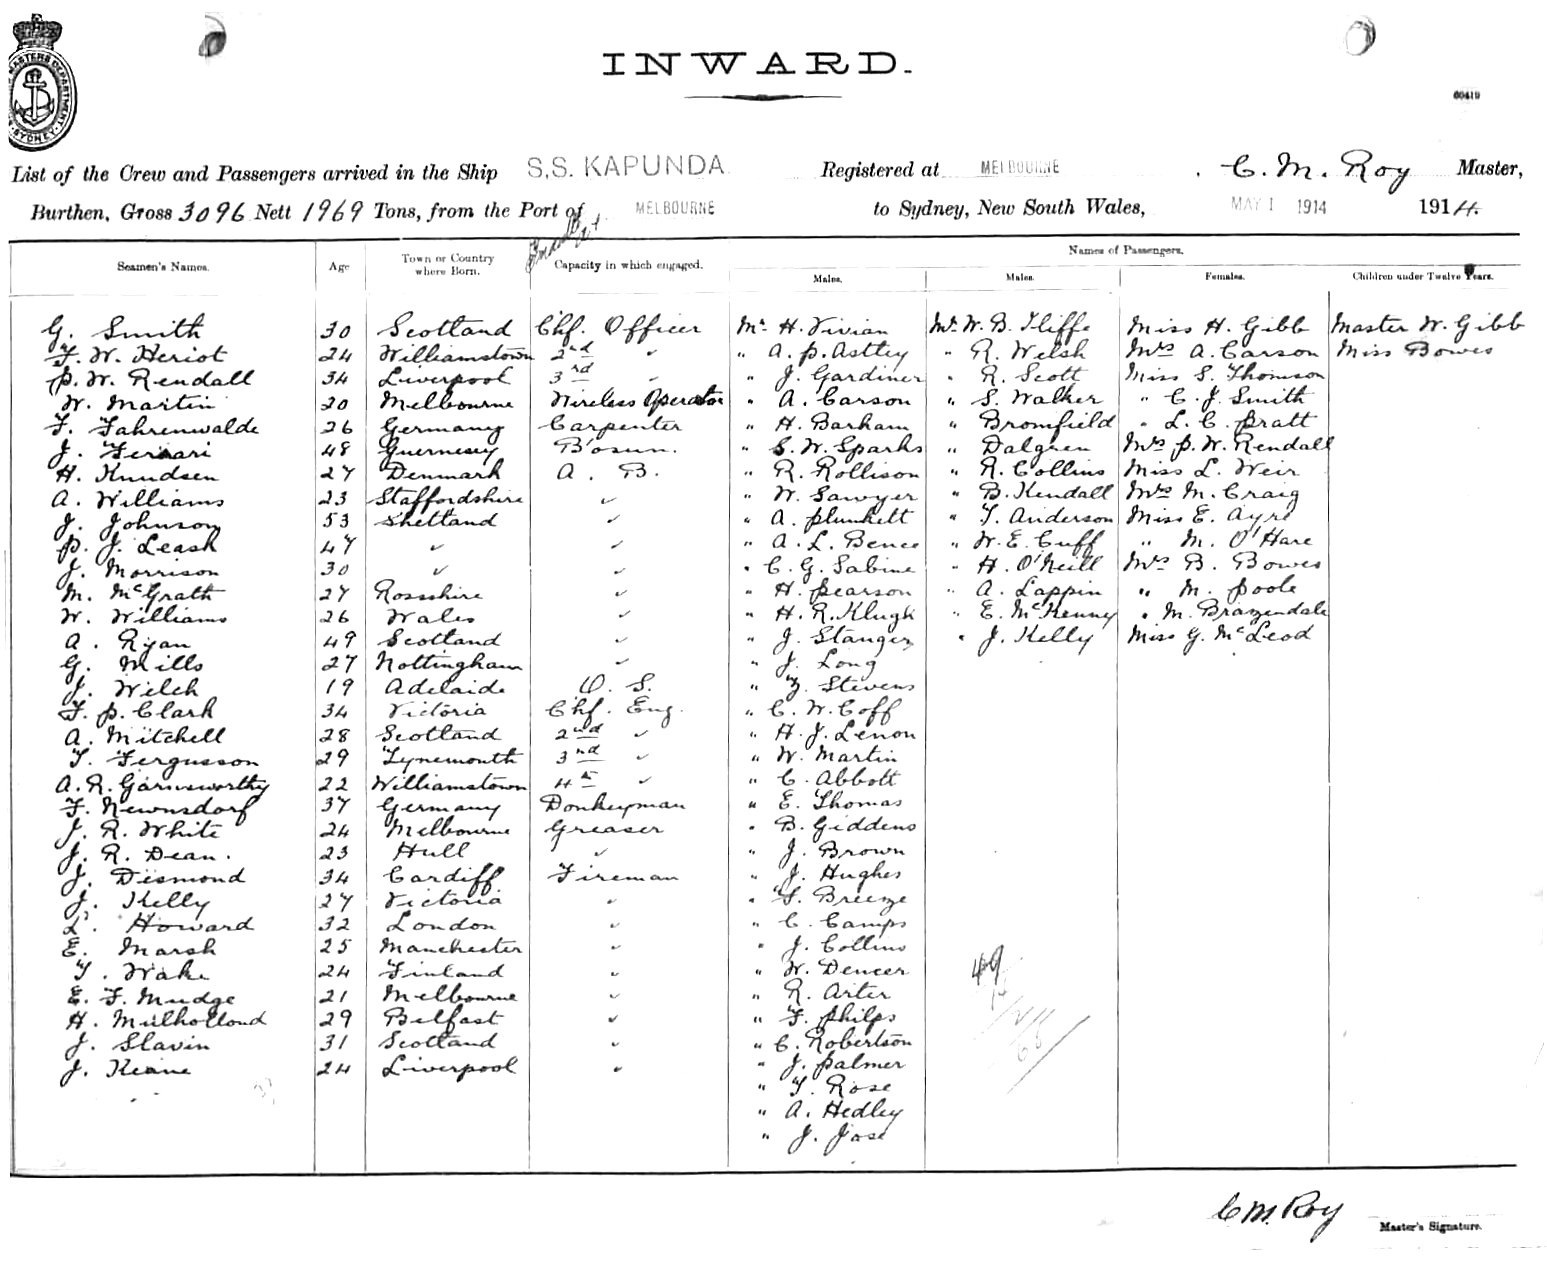 MASTERS DEPARTMENT
SYDNEY
INWARD.
60419
List of the Crew and Passengers arrived in the Ship S.S. KAPUNDA Registered at MELBOURNE . C. M. Roy Master,
Burthen, Gross 3096 Nett 1969 Tons, from the Port of MELBOURNE to Sydney, New South Wales, MAY 1 1914 1914.
Seamen's Names. Age Town or Country where Born. Capacity in which engaged. Names of Passengers.
Males. Males. Females. Children under Twelve Years.
G. Smith 30 Scotland Chf. Officer Mr. H. Vivian Mr. W. B. Iliffe Miss H. Gibb Master W. Gibb
F. W. Heriot 24 Williamstown 2nd " " A. P. Astley " R. Welsh Mrs A. Carson Miss Bowes
P. W. Rendall 34 Liverpool 3rd " " J. Gardiner " R. Scott Miss S. Thomson
W. Martin 20 Melbourne Wireless Operator " A. Carson " S. Walker " C. J. Smith
F. Fahrenwalde 26 Germany Carpenter " H. Barham " Bromfield " L. C. Pratt
J. Ferrari 48 Guernsey B'osun. " S. W. Sparks " Dalgren Mrs P. W. Rendall
H. Knudsen 27 Denmark A. B. " R. Rollison " R. Collins Miss L. Weir
A. Williams 23 Staffordshire " " W. Sawyer " B. Kendall Mrs M. Craig
J. Johnson 53 Shetland " " A. Plunkett " T. Anderson Miss E. Ayre
P. J. Leask 47 " " " A. L. Bence " W. E. Cuff " M. O'Hare
J. Morrison 30 " " " C. G. Sabine " H. O'Neill Mrs B. Bowes
M. McGrath 27 Rossshire " " H. Pearson " A. Lappin " M. Poole
W. Williams 26 Wales " " H. R. Klugh " E. McKenney " M. Brazendale
A. Ryan 49 Scotland " " J. Stanger " J. Kelly Miss G. McLeod
G. Mills 27 Nottingham " " J. Long
J. Welch 19 Adelaide O. S. " Stevens
F. P. Clark 34 Victoria Chf. Eng. " C. W. Goff
A. Mitchell 28 Scotland 2nd " " H. J. Lenon
T. Fergusson 29 Tynemouth 3rd " " W. Martin
A. R. Garnsworthy 22 Williamstown 4th " " C. Abbott
F. Newnsdorf 37 Germany Donkeyman " E. Thomas
J. R. White 24 Melbourne Greaser " B. Giddens
J. R. Dean. 23 Hull " " J. Brown
J. Desmond 34 Cardiff Fireman " J. Hughes
J. Kelly 27 Victoria " " Breeze
L. Howard 32 London " " C. Camps
E. Marsh 25 Manchester " " J. Collins
T. Wake 24 Finland " " W. Dencer
E. F. Mudge 21 Melbourne " " R. Arter
H. Mulholland 29 Belfast " " F. Philps
J. Slavin 31 Scotland " " C. Robertson
J. Keane 24 Liverpool " " J. Palmer
" T. Rose
" A. Hedley
" J. Jose
49
C M. Roy
Master's Signature.